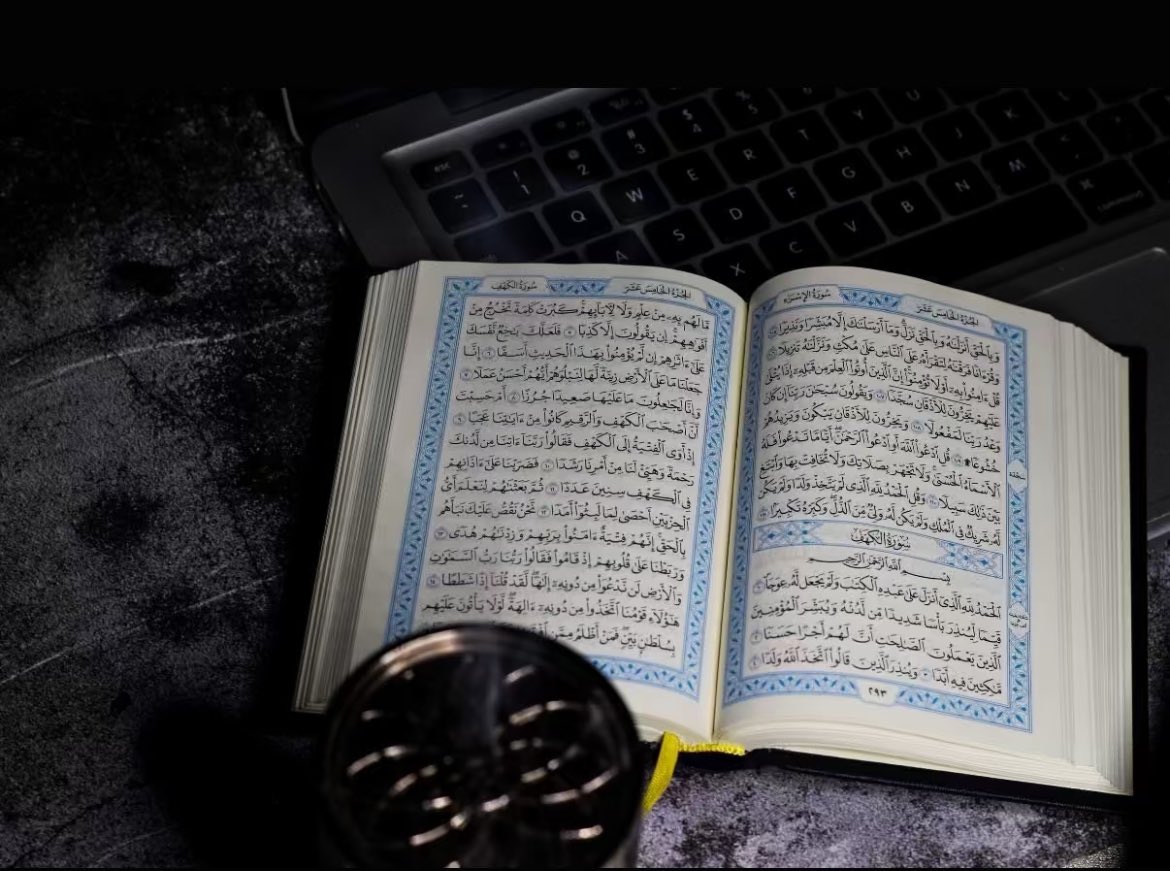 esc
! 1 @ 2 # 3 $ 4 % 5
Q W E R T Y U
A S D F G H J K L
X C V B N M
⌘ command
الجُزْءُ الخَامِسَ عَشَرَ سُورَةُ الإِسْرَاءِ
وَبِٱلْحَقِّ أَنزَلْنَٰهُ وَبِٱلْحَقِّ نَزَلَ وَمَآ أَرْسَلْنَٰكَ إِلَّا مُبَشِّرًا وَنَذِيرًا ١٠٥
وَقُرْءَانًا فَرَقْنَٰهُ لِتَقْرَأَهُۥ عَلَى ٱلنَّاسِ عَلَىٰ مُكْثٍ وَنَزَّلْنَٰهُ تَنزِيلًا ١٠٦
قُلْ ءَامِنُوا۟ بِهِۦٓ أَوْ لَا تُؤْمِنُوٓا۟ إِنَّ ٱلَّذِينَ أُوتُوا۟ ٱلْعِلْمَ مِن قَبْلِهِۦٓ إِذَا يُتْلَىٰ
عَلَيْهِمْ يَخِرُّونَ لِلْأَذْقَانِ سُجَّدًا ١٠٧ وَيَقُولُونَ سُبْحَٰنَ رَبِّنَآ إِن كَانَ
وَعْدُ رَبِّنَا لَمَفْعُولًا ١٠٨ وَيَخِرُّونَ لِلْأَذْقَانِ يَبْكُونَ وَيَزِيدُهُمْ
خُشُوعًا ۩ ١٠٩ قُلِ ٱدْعُوا۟ ٱللَّهَ أَوِ ٱدْعُوا۟ ٱلرَّحْمَٰنَ أَيًّا مَّا تَدْعُوا۟ فَلَهُ
ٱلْأَسْمَآءُ ٱلْحُسْنَىٰ وَلَا تَجْهَرْ بِصَلَاتِكَ وَلَا تُخَافِتْ بِهَا وَٱبْتَغِ
بَيْنَ ذَٰلِكَ سَبِيلًا ١١٠ وَقُلِ ٱلْحَمْدُ لِلَّهِ ٱلَّذِى لَمْ يَتَّخِذْ وَلَدًا وَلَمْ يَكُن
لَّهُۥ شَرِيكٌ فِى ٱلْمُلْكِ وَلَمْ يَكُن لَّهُۥ وَلِىٌّ مِّنَ ٱلذُّلِّ وَكَبِّرْهُ تَكْبِيرًۢا ١١١
سُورَةُ الكَهْفِ
بِسْمِ ٱللَّهِ ٱلرَّحْمَٰنِ ٱلرَّحِيمِ
ٱلْحَمْدُ لِلَّهِ ٱلَّذِىٓ أَنزَلَ عَلَىٰ عَبْدِهِ ٱلْكِتَٰبَ وَلَمْ يَجْعَل لَّهُۥ عِوَجَا ١
قَيِّمًا لِّيُنذِرَ بَأْسًا شَدِيدًا مِّن لَّدُنْهُ وَيُبَشِّرَ ٱلْمُؤْمِنِينَ
ٱلَّذِينَ يَعْمَلُونَ ٱلصَّٰلِحَٰتِ أَنَّ لَهُمْ أَجْرًا حَسَنًا ٢
مَّٰكِثِينَ فِيهِ أَبَدًا ٣ وَيُنذِرَ ٱلَّذِينَ قَالُوا۟ ٱتَّخَذَ ٱللَّهُ وَلَدًا ٤
٢٩٣
الجُزْءُ الخَامِسَ عَشَرَ سُورَةُ الكَهْفِ
مَّا لَهُم بِهِۦ مِنْ عِلْمٍ وَلَا لِءَابَآئِهِمْ كَبُرَتْ كَلِمَةً تَخْرُجُ مِنْ
أَفْوَٰهِهِمْ إِن يَقُولُونَ إِلَّا كَذِبًا ٥ فَلَعَلَّكَ بَٰخِعٌ نَّفْسَكَ
عَلَىٰٓ ءَاثَٰرِهِمْ إِن لَّمْ يُؤْمِنُوا۟ بِهَٰذَا ٱلْحَدِيثِ أَسَفًا ٦ إِنَّا
جَعَلْنَا مَا عَلَى ٱلْأَرْضِ زِينَةً لَّهَا لِنَبْلُوَهُمْ أَيُّهُمْ أَحْسَنُ عَمَلًا ٧
وَإِنَّا لَجَٰعِلُونَ مَا عَلَيْهَا صَعِيدًا جُرُزًا ٨ أَمْ حَسِبْتَ
أَنَّ أَصْحَٰبَ ٱلْكَهْفِ وَٱلرَّقِيمِ كَانُوا۟ مِنْ ءَايَٰتِنَا عَجَبًا ٩
إِذْ أَوَى ٱلْفِتْيَةُ إِلَى ٱلْكَهْفِ فَقَالُوا۟ رَبَّنَآ ءَاتِنَا مِن لَّدُنكَ
رَحْمَةً وَهَيِّئْ لَنَا مِنْ أَمْرِنَا رَشَدًا ١٠ فَضَرَبْنَا عَلَىٰٓ ءَاذَانِهِمْ
فِى ٱلْكَهْفِ سِنِينَ عَدَدًا ١١ ثُمَّ بَعَثْنَٰهُمْ لِنَعْلَمَ أَىُّ
ٱلْحِزْبَيْنِ أَحْصَىٰ لِمَا لَبِثُوٓا۟ أَمَدًا ١٢ نَّحْنُ نَقُصُّ عَلَيْكَ نَبَأَهُم
بِٱلْحَقِّ إِنَّهُمْ فِتْيَةٌ ءَامَنُوا۟ بِرَبِّهِمْ وَزِدْنَٰهُمْ هُدًى ١٣
وَرَبَطْنَا عَلَىٰ قُلُوبِهِمْ إِذْ قَامُوا۟ فَقَالُوا۟ رَبُّنَا رَبُّ ٱلسَّمَٰوَٰتِ
وَٱلْأَرْضِ لَن نَّدْعُوَا۟ مِن دُونِهِۦٓ إِلَٰهًا لَّقَدْ قُلْنَآ إِذًا شَطَطًا ١٤
هَٰٓؤُلَآءِ قَوْمُنَا ٱتَّخَذُوا۟ مِن دُونِهِۦٓ ءَالِهَةً لَّوْلَا يَأْتُونَ عَلَيْهِم
بِسُلْطَٰنٍۭ بَيِّنٍ فَمَنْ أَظْلَمُ مِمَّنِ